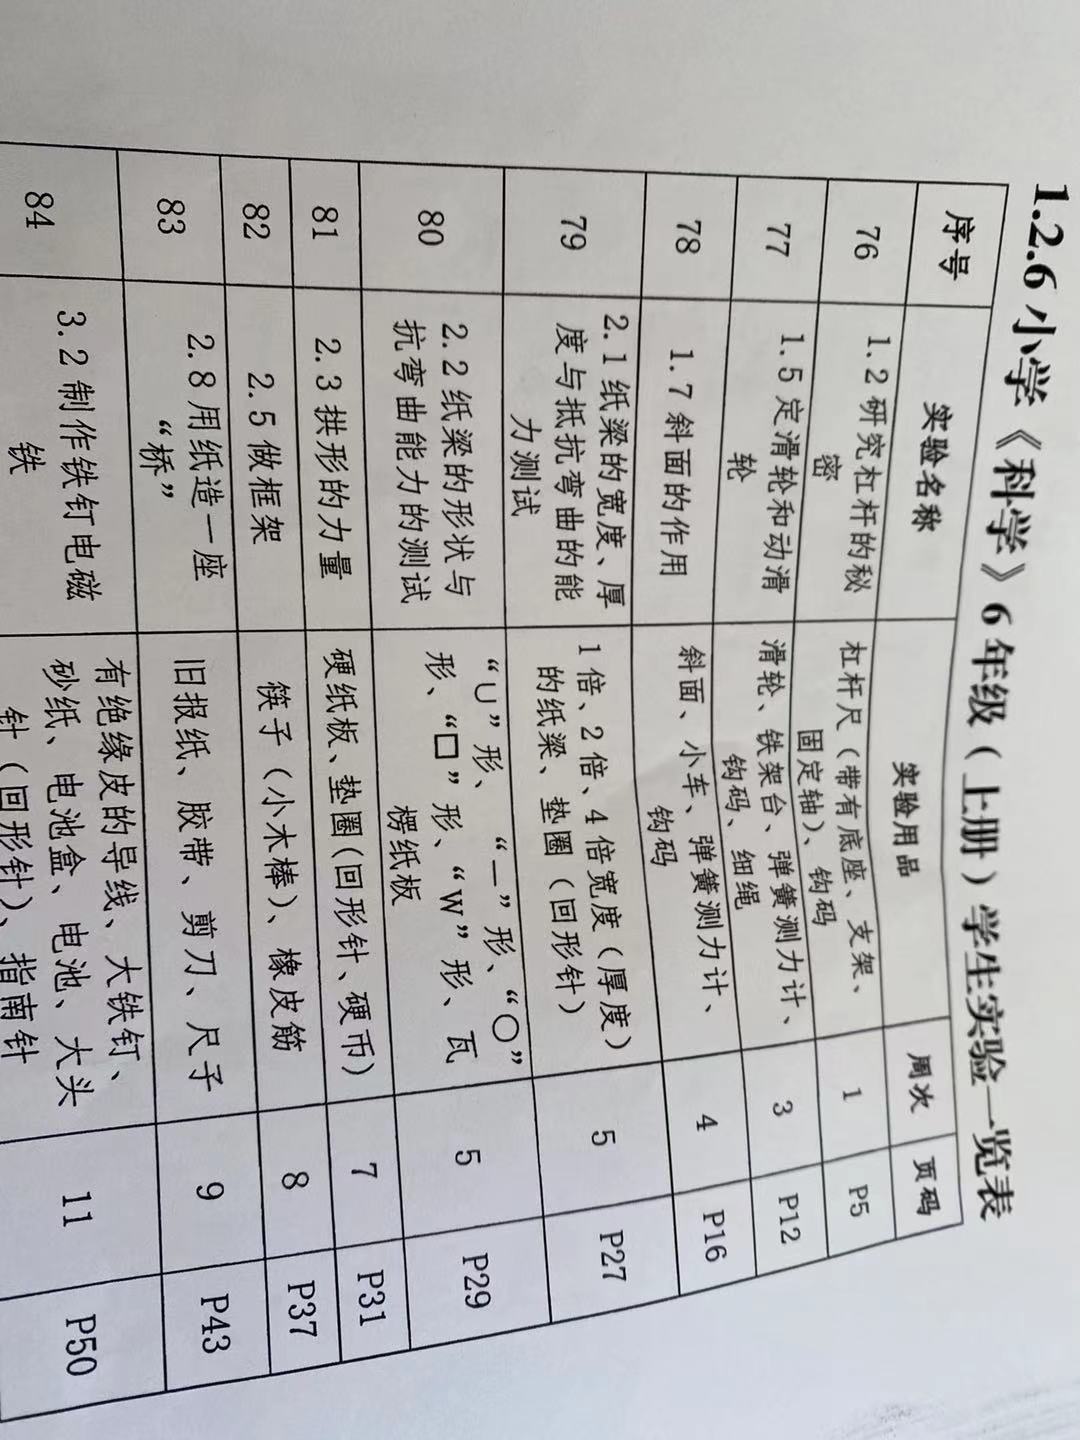 1.2.6 小学《科学》6 年级（上册）学生实验一览表
序号 实验名称 实验用品 周次 页码
76 1.2 研究杠杆的秘 杠杆尺（带有底座、支架、 1 P5
密 固定轴）、钩码
77 1.5 定滑轮和动滑 滑轮、铁架台、弹簧测力计、 3 P12
轮 钩码、细绳
78 1.7 斜面的作用 斜面、小车、弹簧测力计、 4 P16
钩码
79 2.1 纸梁的宽度、厚 1 倍、2 倍、4 倍宽度（厚度） 5 P27
度与抵抗弯曲的能 的纸梁、垫圈（回形针）
力测试
80 2.2 纸梁的形状与 “∪”形、 “—”形、“○” 5 P29
抗弯曲能力的测试 形、“口”形、“W”形、瓦
楞纸板
81 2.3 拱形的力量 硬纸板、垫圈（回形针、硬币） 7 P31
82 2.5 做框架 筷子（小木棒）、橡皮筋 8 P37
83 2.8 用纸造一座 旧报纸、胶带、剪刀、尺子 9 P43
“桥”
84 3.2 制作铁钉电磁 有绝缘皮的导线、大铁钉、 11 P50
铁 砂纸、电池盒、电池、大头
针（回形针）、指南针